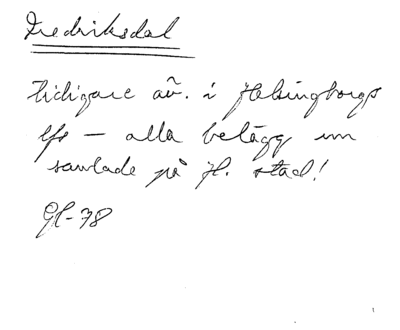 Fredriksdal
tidigare av. i Helsingborgs
lfs — alla belägg nu
samlade på H. stad!
GL-78